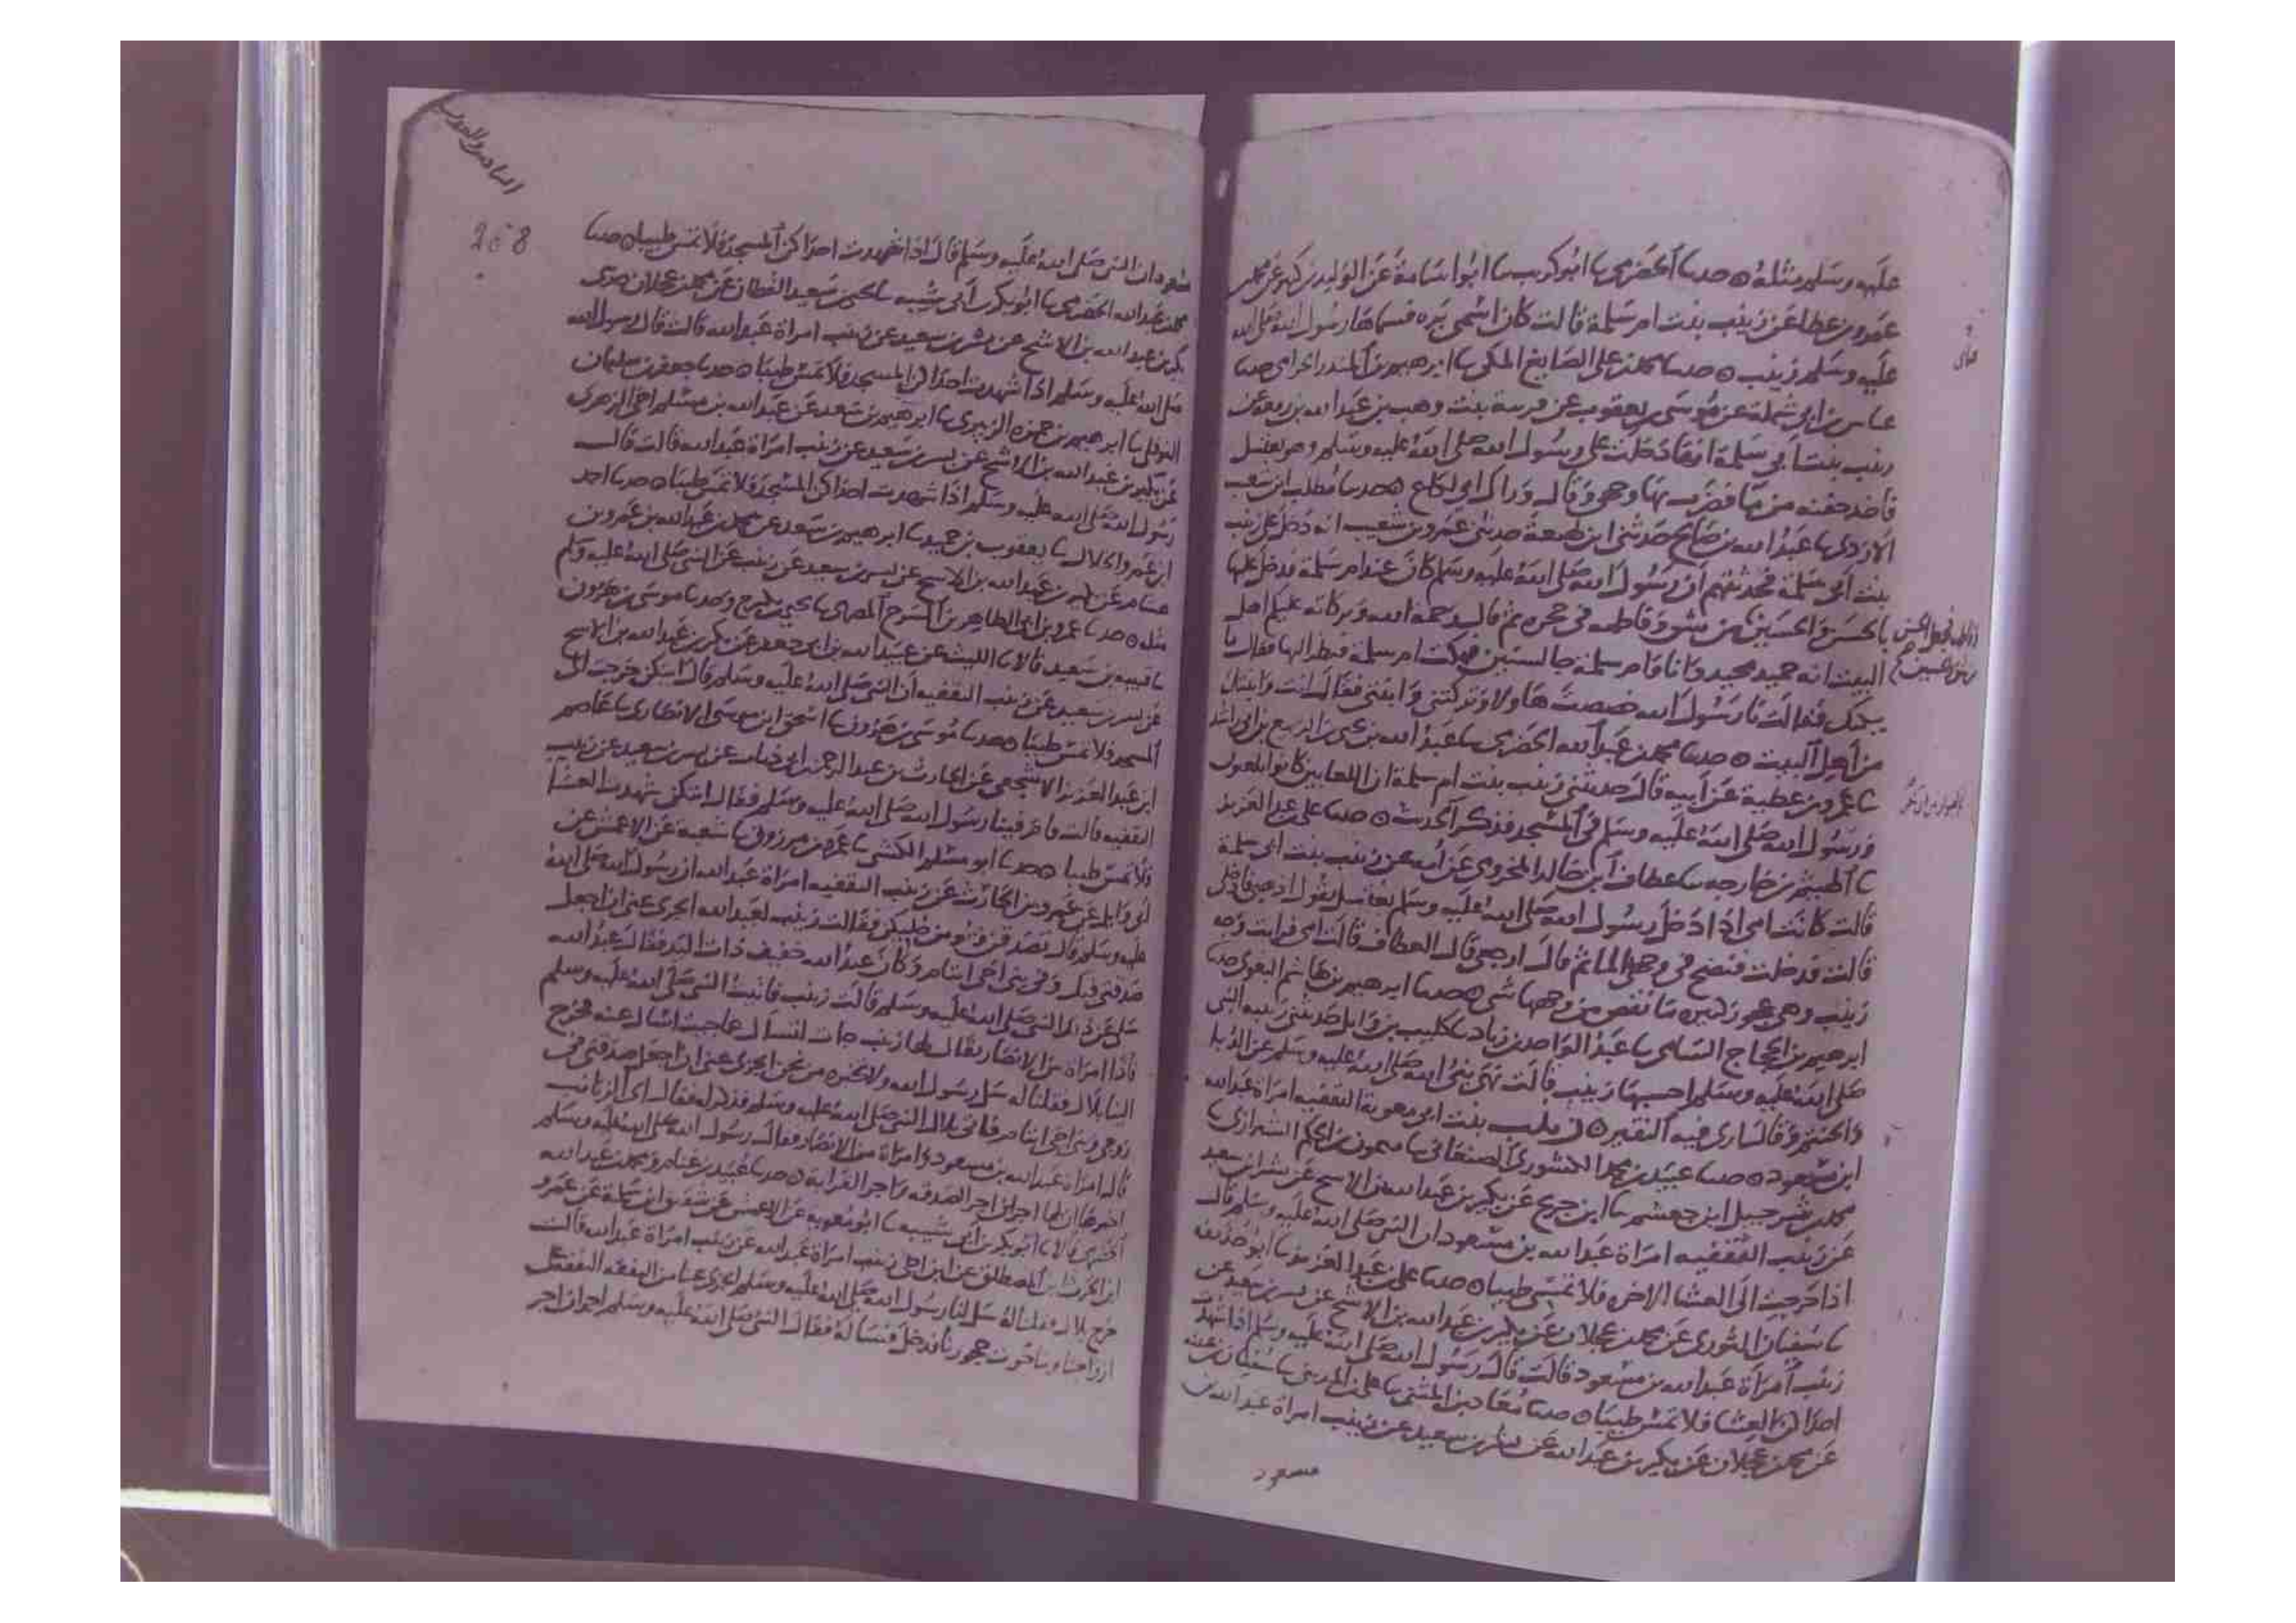 عليه وسلم مثله ٥ حدثنا الحضرمي نا ابو كريب نا ابو اسامة عن الوليد بن كثير عن محمد بن
عمرو بن عطا عن زينب بنت ام سلمة قالت كان اسمي بره فسماها رسول الله صلى الله
عليه وسلم زينب ٥ حدثنا محمد بن علي الصايغ المكي نا ابرهيم بن المنذر الحزامي حدثنا
عباس بن ابي شملة عن موسى بن يعقوب عن قريبة بنت وهب بن عبد الله بن زمعة عن
زينب بنت ابي سلمة انها دخلت على رسول الله صلى الله عليه وسلم وهو يغتسل
فاخذ حفنه من ما فضرب بها وجهي وقال وراك اي لكاع ٥ حدثنا مطلب بن شعيب
الازدي نا عبد الله بن صالح حدثني ابن لهيعة حدثني عمرو بن شعيب انه دخل على زينب
بنت ابي سلمة فحدثتهم ان رسول الله صلى الله عليه وسلم كان عند ام سلمة فدخل عليها
بالحسن والحسين من شق وفاطمه في حجره ثم قال رحمة الله وبركاته عليكم اهل
البيت انه حميد مجيد وانا وام سلمة جالستين فبكت ام سلمة فنظر اليها فقال ما
يبكيك فقالت يا رسول الله خصصت هاولا وتركتني وابنتي فقال انت وابنتك
من اهل البيت ٥ حدثنا محمد بن عبد الله الحضرمي نا عبد الله بن يحيى بن الربيع بن ابي راشد
نا عمرو بن عطية عن ابيه قال حدثتني زينب بنت ام سلمة ان اللعابين كانوا يلعبون
ورسول الله صلى الله عليه وسلم في المسجد فذكر الحديث ٥ حدثنا علي بن عبد العزيز
نا الهيثم بن خارجه نا عطاف بن خالد المخزومي عن امه عن زينب بنت ابي سلمة
قالت كانت امي اذا دخل رسول الله صلى الله عليه وسلم يغتسل تقول ادخلي
قالت فدخلت فنضح في وجهي الما ثم قال ارجعي قال العطاف قالت امي فرايت وجه
زينب وهي عجوز كبيره ما نقص من وجهها شي ٥ حدثنا ابرهيم بن هاشم البغوي حدثنا
ابرهيم بن الحجاج السامي نا عبد الواحد بن زياد نا كليب بن وايل حدثتني ربيبة النبي
صلى الله عليه وسلم احسبها زينب قالت نهى نبي الله صلى الله عليه وسلم عن الدبا
والحنتم وقال ارى فيه النقير ٥ زينب بنت ابي معوية الثقفيه امراة عبد الله
ابن مسعود ٥ حدثنا عبيد بن محمد الكشوري الصنعاني نا ميمون بن الحكم الشرازي نا
محمد بن شرحبيل ابن جعشم نا ابن جريج عن بكير بن عبد الله بن الاشج عن بسر بن سعيد
عن زينب الثقفيه امراة عبد الله بن مسعود ان النبي صلى الله عليه وسلم قال
اذا خرجت الى العشا الاخره فلا تمسي طيبا ٥ حدثنا علي بن عبد العزيز نا ابو حذيفة
نا سفيان الثوري عن محمد بن عجلان عن بكير بن عبد الله بن الاشج عن بسر بن سعيد عن
زينب امراة عبد الله بن مسعود قالت قال رسول الله صلى الله عليه وسلم اذا شهدت
احداكن العشا فلا تمس طيبا ٥ حدثنا معاذ بن المثنى نا علي بن المديني نا سفيان بن عيينه
عن محمد بن عجلان عن بكير بن عبد الله عن بسر بن سعيد عن زينب امراة عبد الله بن
مسعود
268
مسعود ان النبي صلى الله عليه وسلم قال اذا شهدت احداكن المسجد فلا تمس طيبا ٥ حدثنا
محمد بن عبد الله الحضرمي نا ابو بكر بن ابي شيبه نا يحيى بن سعيد القطان عن محمد بن عجلان حدثني
بكير بن عبد الله بن الاشج عن بسر بن سعيد عن زينب امراة عبد الله قالت قال رسول الله
صلى الله عليه وسلم اذا شهدت احداكن المسجد فلا تمس طيبا ٥ حدثنا جعفر بن سليمان
النوفلي نا ابرهيم بن حمزه الزبيري نا ابرهيم بن سعد عن عبد الله بن مسلم اخي الزهري
عن بكير بن عبد الله بن الاشج عن بسر بن سعيد عن زينب امراة عبد الله قالت قال
رسول الله صلى الله عليه وسلم اذا شهدت احداكن المسجد فلا تمس طيبا ٥ حدثنا احمد
ابن عمرو الخلال نا يعقوب بن حميد نا ابرهيم بن سعد عن محمد بن عبد الله بن عمرو بن
هشام عن بكير بن عبد الله بن الاشج عن بسر بن سعيد عن زينب عن النبي صلى الله عليه وسلم
مثله ٥ حدثنا عمرو بن ابي الطاهر بن السرح المصري نا يحيى بن بكير ح وحدثنا موسى بن هرون
نا قتيبه بن سعيد قالا نا الليث عن عبيد الله بن ابي جعفر عن بكير بن عبد الله بن الاشج
عن بسر بن سعيد عن زينب الثقفيه ان النبي صلى الله عليه وسلم قال ايتكن خرجت الى
المسجد فلا تمس طيبا ٥ حدثنا موسى بن هرون نا اسحق ابن موسى الانصاري نا عاصم
ابن عبد العزيز الاشجعي عن الحارث بن عبد الرحمن بن ابي ذباب عن بسر بن سعيد عن زينب
الثقفيه قالت فينا رسول الله صلى الله عليه وسلم فقال ايتكن شهدت العشا
فلا تمس طيبا ٥ حدثنا ابو مسلم الكشي نا عمرو بن مرزوق نا شعبة عن الاعمش عن
ابي وايل عن عمرو بن الحارث عن زينب الثقفيه امراة عبد الله ان رسول الله صلى الله
عليه وسلم قال تصدقن ولو من حليكن فقالت زينب لعبد الله ايجزي عني ان اجعل
صدقتي فيك وفي بني اخي ايتام وكان عبد الله خفيف ذات اليد فقال عبد الله
سلي عن ذلك النبي صلى الله عليه وسلم قالت زينب فاتيت النبي صلى الله عليه وسلم
فاذا امراة من الانصار يقال لها زينب جات تسال عما جيت اسال عنه فخرج
الينا بلال فقلنا له سل رسول الله ولا تخبره من نحن ايجزي عني ان اجعل صدقتي في
زوجي وبني اخي ايتام فاتى بلال النبي صلى الله عليه وسلم فذكر له فقال اي الزيانب
قال امراة عبد الله بن مسعود وامراة من الانصار فقال رسول الله صلى الله عليه وسلم
اخبرها ان لها اجران اجر الصدقه واجر القرابة ٥ حدثنا عبيد بن غنام ومحمد بن عبد الله
الحضرمي قالا نا ابو بكر بن ابي شيبه نا ابو معويه عن الاعمش عن شقيق ابن سلمة عن عمرو
ابن الحرث بن المصطلق عن ابن اخي زينب امراة عبد الله عن زينب امراة عبد الله قالت
خرج بلال فقلنا له سل لنا رسول الله صلى الله عليه وسلم ايجزي عنا من النفقه
ازواجنا وبنا في حجورنا فدخل فساله فقال النبي صلى الله عليه وسلم اجران اجر